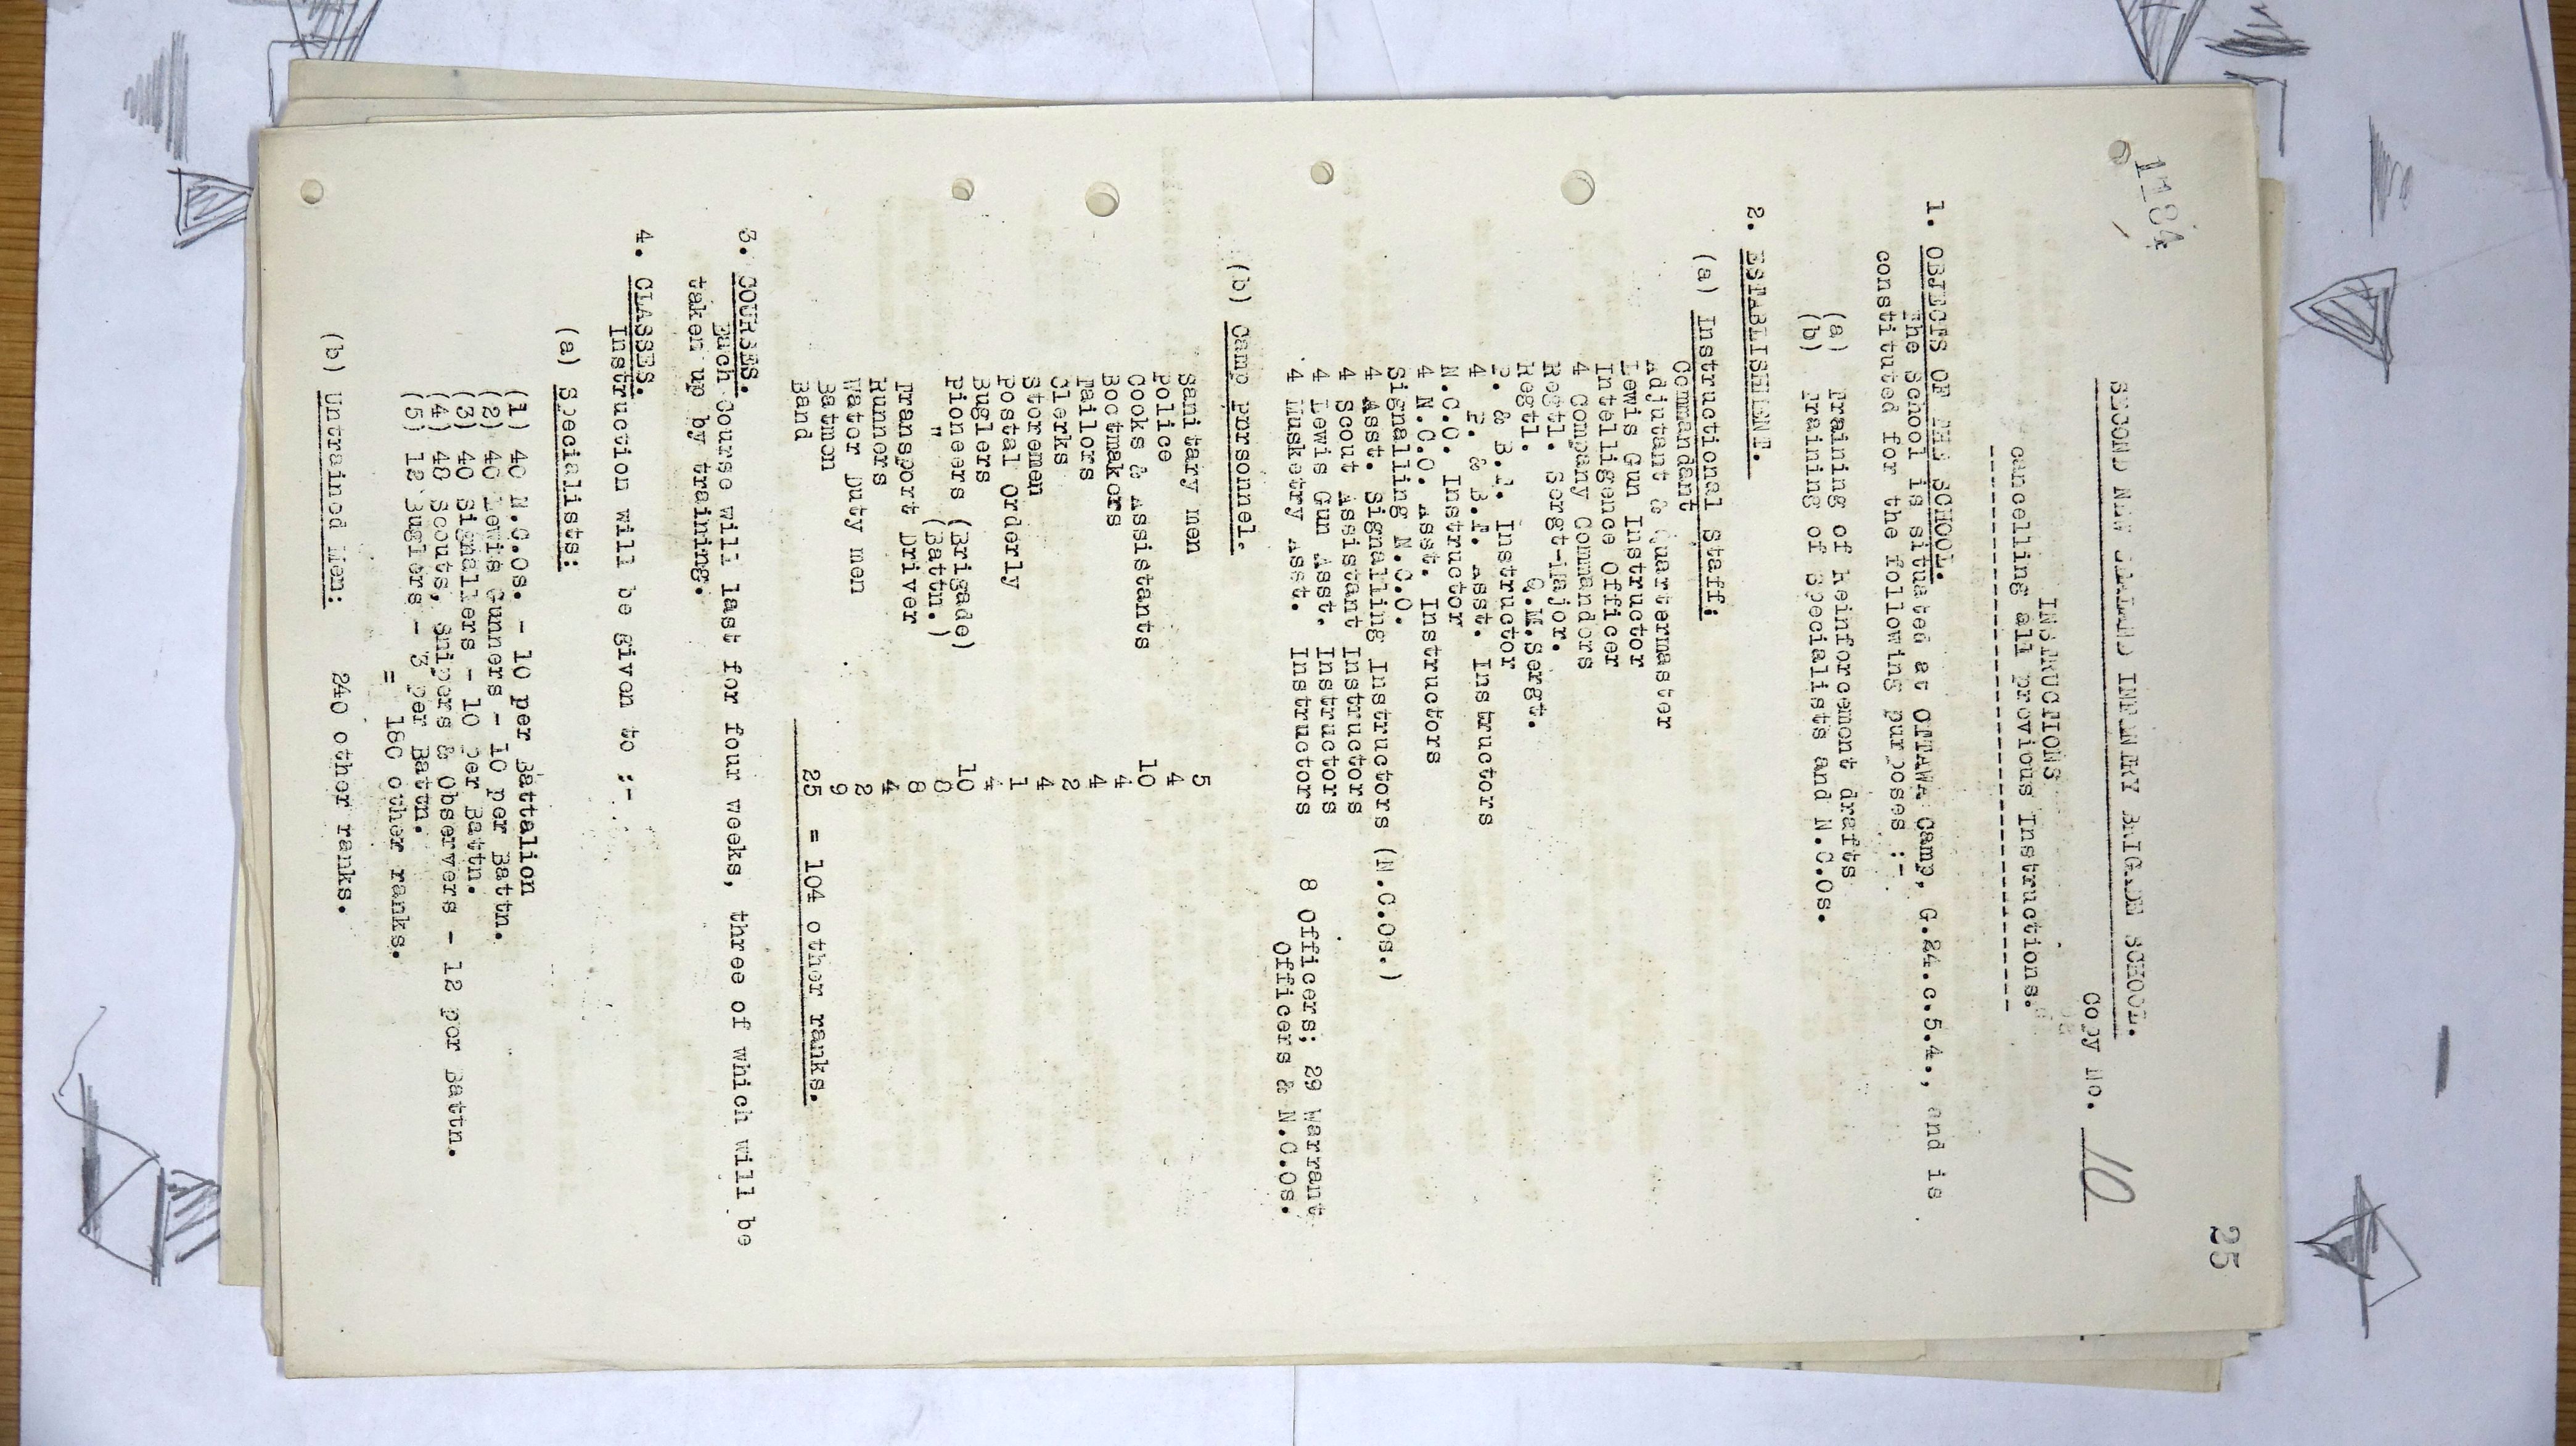 25
1184
SECOND NEW ZEALAND INFANTRY BRIGADE SCHOOL.
Copy No. 10
INSTRUCTIONS
cancelling all previous Instructions.
------------------------------
1. OBJECTS OF THE SCHOOL.
The School is situated at OTTAWA Camp, G.24.c.5.4., and is
constituted for the following purposes :-
(a) Training of Reinforcement drafts
(b) Training of Specialists and N.C.Os.
2. ESTABLISHMENT.
(a) Instructional Staff:
Commandant
Adjutant & Quartermaster
Lewis Gun Instructor
Intelligence Officer
4 Company Commanders
Regtl. Sergt-Major.
Regtl. Q.M.Sergt.
P. & B.T. Instructor
4 P. & B.T. Asst. Instructors
N.C.O. Instructor
4 N.C.O. Asst. Instructors
Signalling N.C.O.
4 Asst. Signalling Instructors (N.C.Os.)
4 Scout Assistant Instructors
4 Lewis Gun Asst. Instructors
4 Musketry Asst. Instructors 8 Officers; 29 Warrant
Officers & N.C.Os.
(b) Camp Personnel.
Sanitary men 5
Police 4
Cooks & Assistants 10
Bootmakers 4
Tailors 4
Clerks 2
Storemen 4
Postal Orderly 1
Buglers 4
Pioneers (Brigade) 10
" (Battn.) 8
Transport Driver 8
Runners 4
Water Duty men 2
Batmen 9
Band 25 = 104 other ranks.
3. COURSES.
Each Course will last for four weeks, three of which will be
taken up by training.
4. CLASSES.
Instruction will be given to :-
(a) Specialists:
(1) 40 N.C.Os. - 10 per Battalion
(2) 40 Lewis Gunners - 10 per Battn.
(3) 40 Signallers - 10 per Battn.
(4) 48 Scouts, Snipers & Observers - 12 per Battn.
(5) 12 Buglers - 3 per Battn.
= 180 other ranks.
(b) Untrained Men: 240 other ranks.